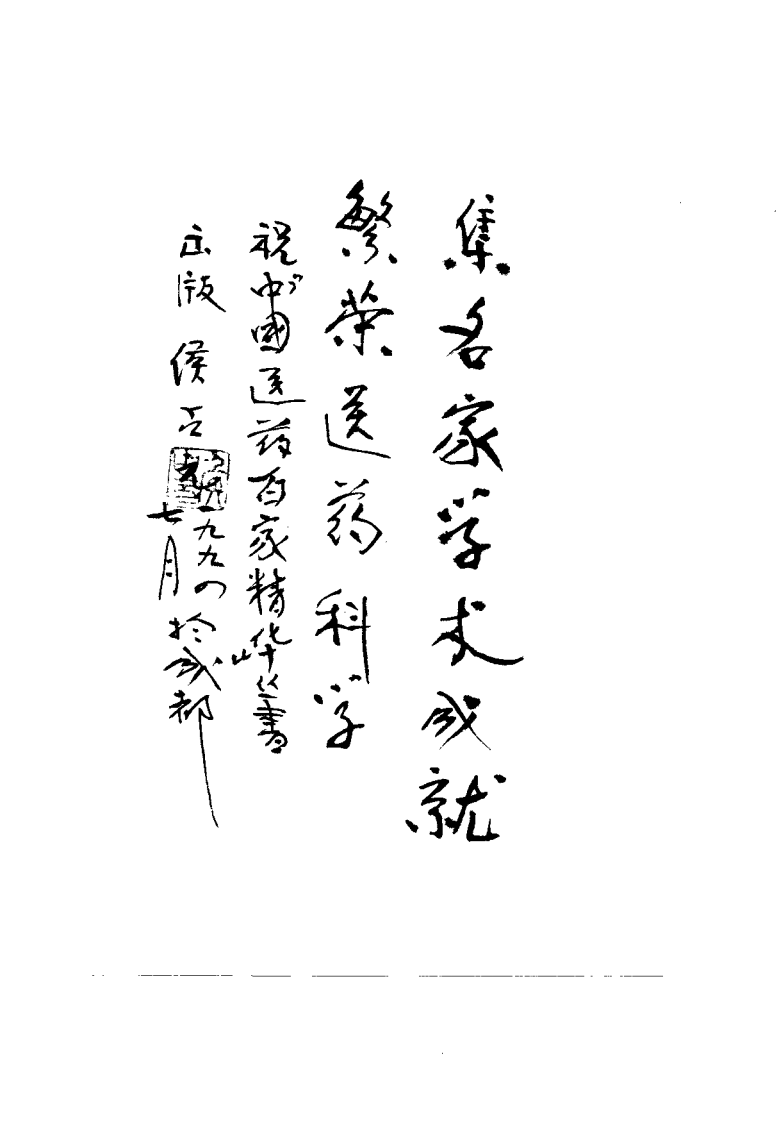 集名家学术成就
繁荣医药科学
祝中國医药百家精华丛書
出版 侯占
一九九四
七月
於成都